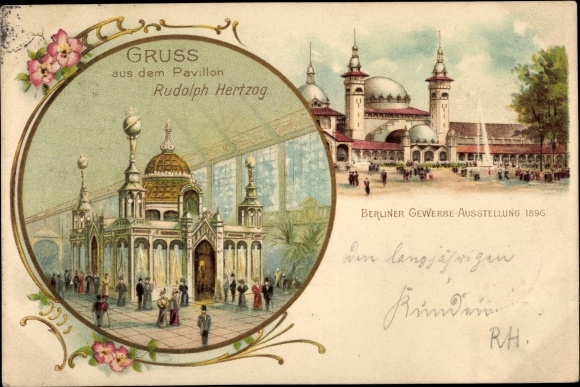 GRUSS
aus dem Pavillon
Rudolph Hertzog.
BERLINER GEWERBE-AUSSTELLUNG 1896.
den langjährigen
Kunden
RH.